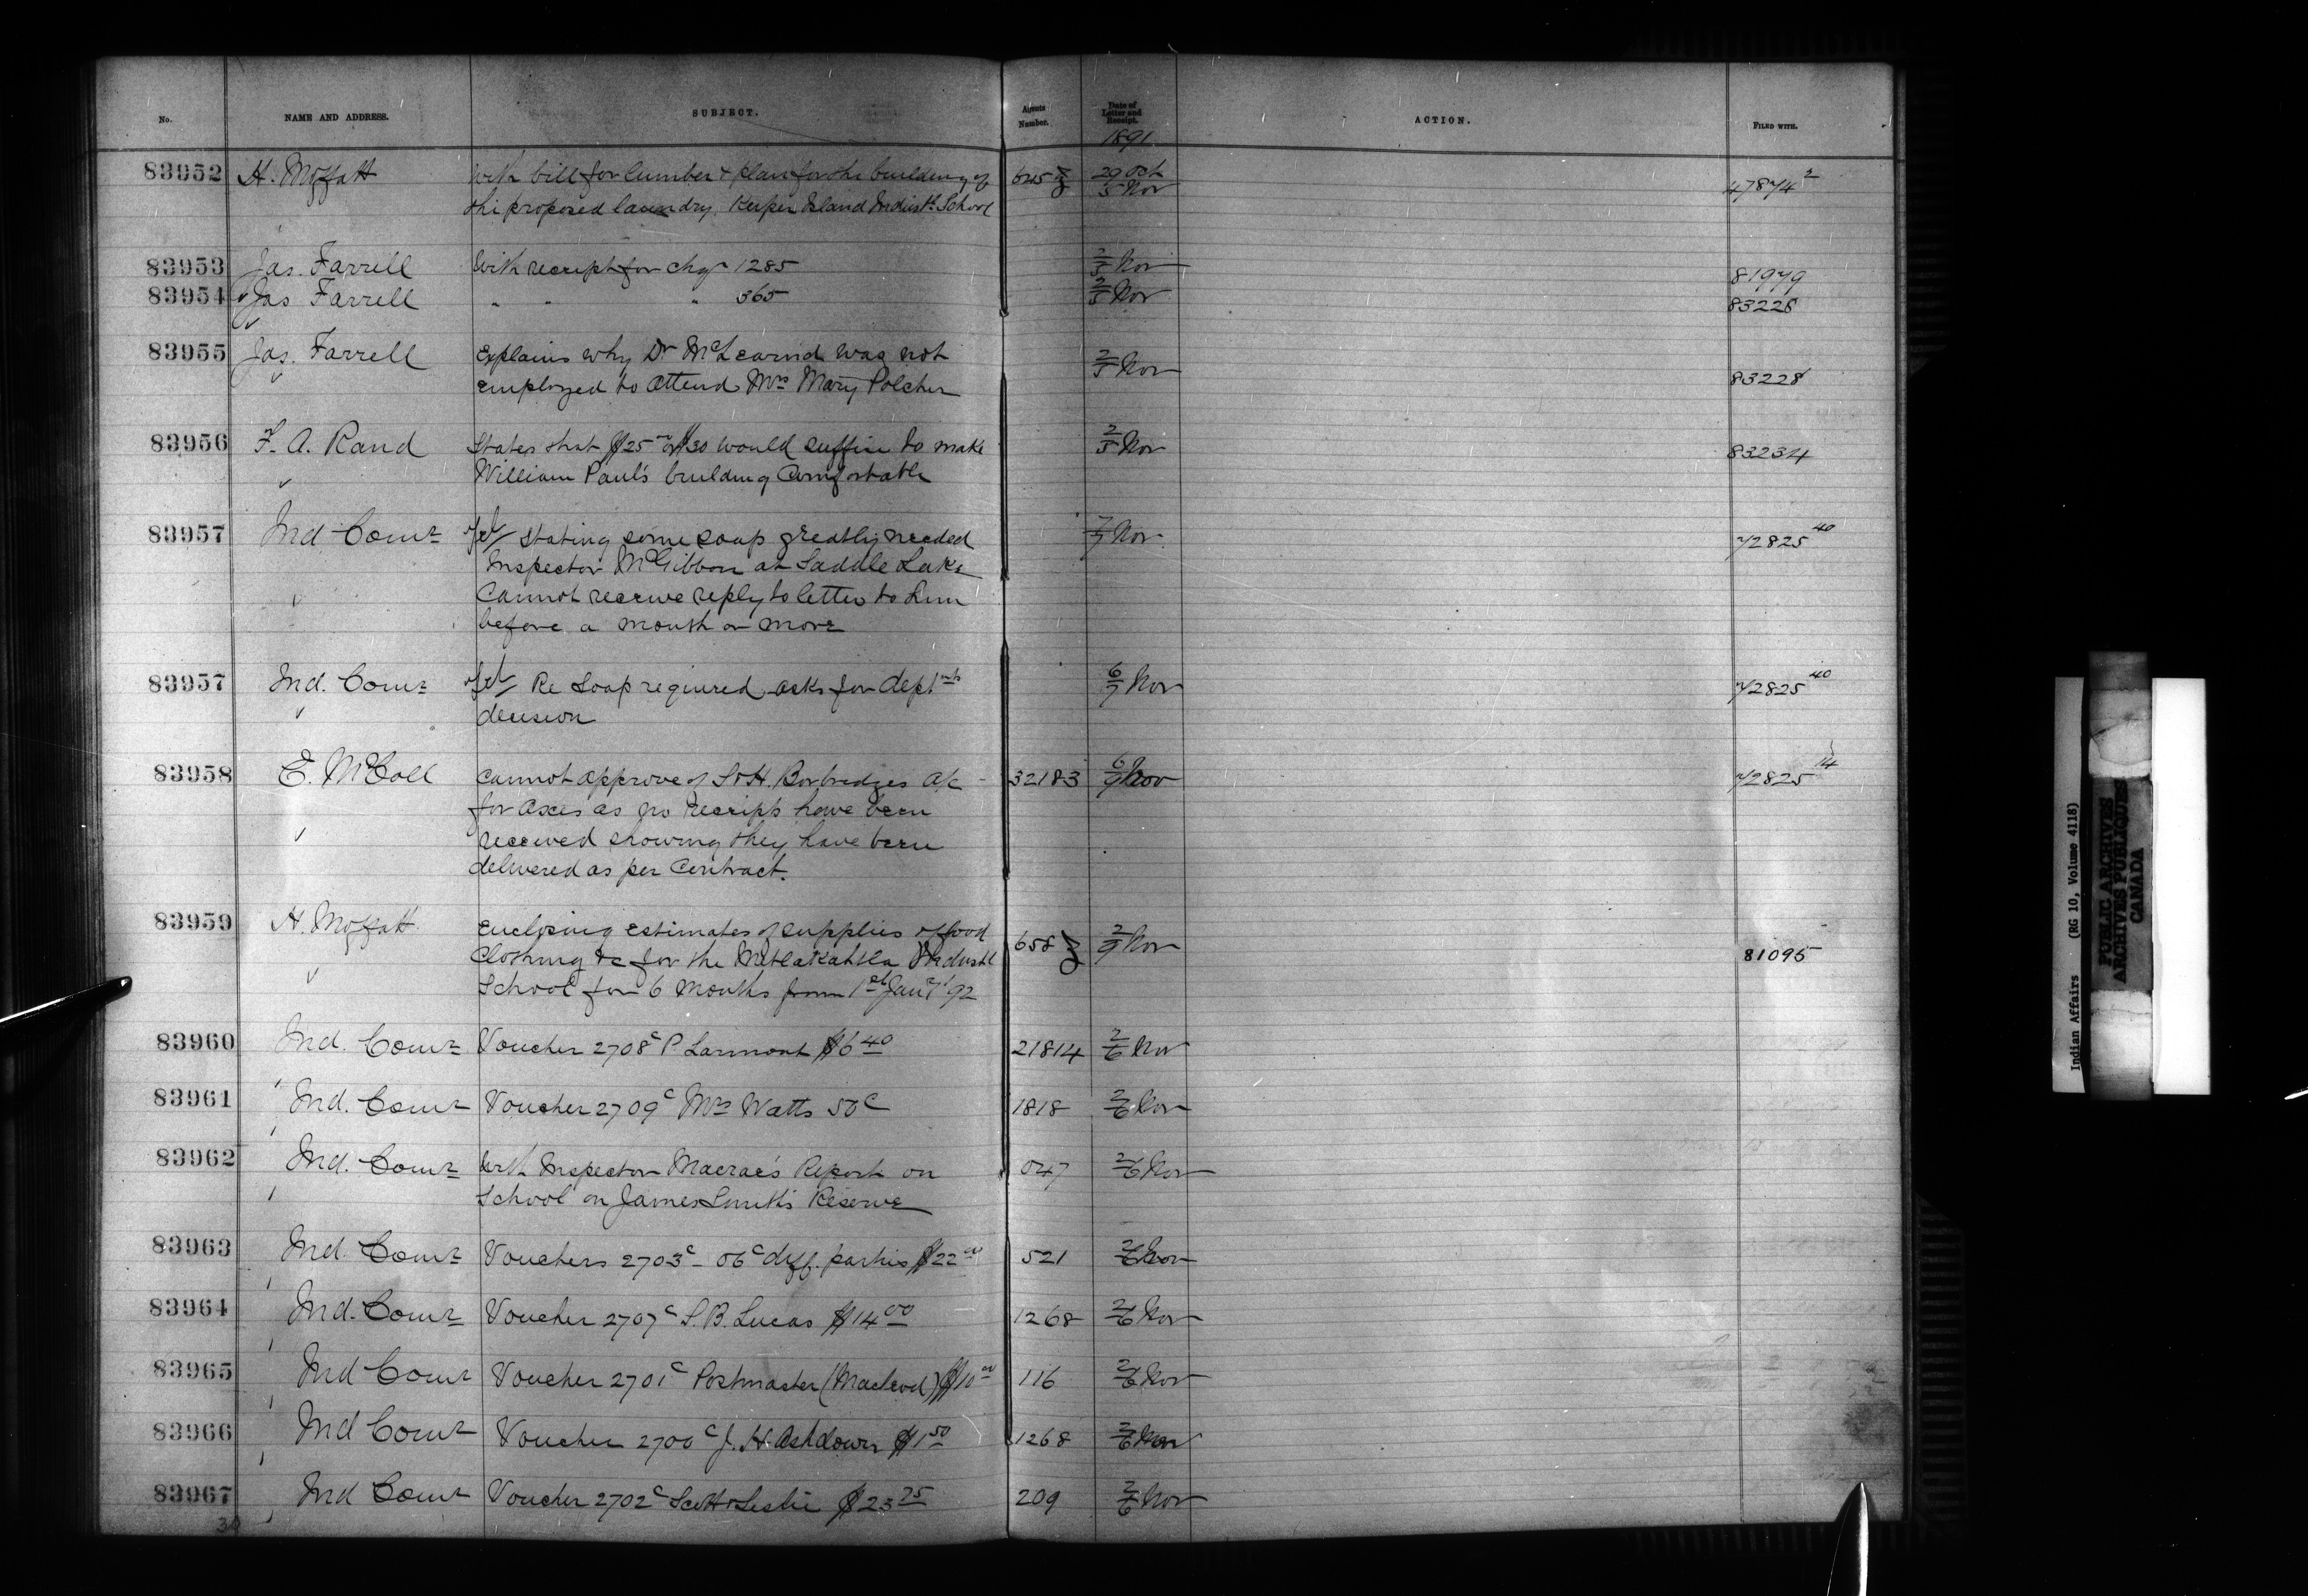 No. NAME AND ADDRESS. SUBJECT. Agents Number. Date of Letter and Receipt. ACTION. FILED WITH.
1891
83952 H. Moffatt With bill for lumber & plan for the building of 645 29 Oct 5 Nov 47874 2
the proposed laundry. Kuper Island Indust. School
83953 Jas. Farrell With receipt for chqr 1285 2/5 Nov 81979
83954 Jas Farrell " " " 365 2/5 Nov 83228
83955 Jas. Farrell Explains why Dr McLearnd was not 2/5 Nov
employed to attend Mrs Mary Polcher 83228
83956 F. A. Rand States that $25 or $30 would suffice to make 2/5 Nov 83234
William Paul's building comfortable
83957 Ind Comr Tel/ Stating some soap greatly needed 7/7 Nov 72825 40
Inspector McGibbon at Saddle Lake
Cannot receive reply to letter to him
before a month or more
83957 Ind. Comr Tel/ Re Soap required, asks for Deptmts 6/7 Nov 72825 40
decision
83958 E. McColl Cannot approve of S&H. Borbridges a/c 32183 6/9 Nov 72825 14
for axes as no receipts have been
received showing they have been
delivered as per Contract.
83959 H. Moffatt Enclosing estimates of supplies of food 658 2/9 Nov 81095
Clothing &c for the Metlakahtla Industl
School for 6 months from 1st Jany '92
83960 Ind. Comr Voucher 2708c P. Larmont $6 40 21814 2/6 Nov
83961 Ind. Comr Voucher 2709c Mrs Watts 50c 1818 2/6 Nov
83962 Ind. Comr With Inspector Macrae's Report on 047 2/6 Nov
School on James Smith's Reserve
83963 Ind. Comr Vouchers 2703c - 06c diff. parties $22 00 521 2/6 Nov
83964 Ind. Comr Voucher 2707c S. B. Lucas $14 00 1268 2/6 Nov
83965 Ind Comr Voucher 2701c Postmaster (Macleod) $10 00 116 2/6 Nov
83966 Ind Comr Voucher 2700c J. H. Ashdown $1 50 1268 2/6 Nov
83967 Ind Comr Voucher 2702c Scott & Leslie $23 75 209 2/6 Nov
Indian Affairs (RG 10, Volume 4118)
PUBLIC ARCHIVES
ARCHIVES PUBLIQUES
CANADA